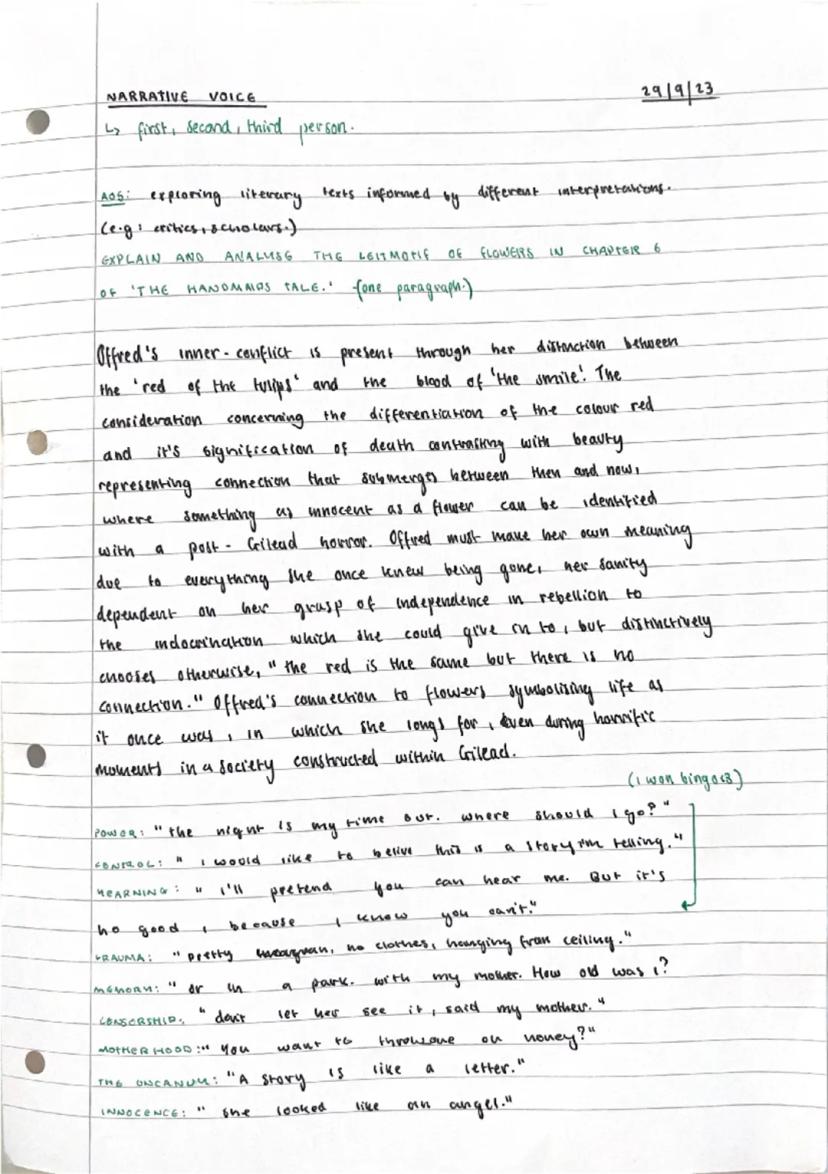 NARRATIVE VOICE 29/9/23
↳ first, second, third person.
AO5: exploring literary texts informed by different interpretations.
(e.g: critics, scholars.)
EXPLAIN AND ANALYSE THE LEITMOTIF OF FLOWERS IN CHAPTER 6
OF 'THE HANDMAIDS TALE.' (one paragraph.)
Offred's inner-conflict is present through her distinction between
the 'red of the tulips' and the blood of 'the smile'. The
consideration concerning the differentiation of the colour red
and it's signification of death contrasting with beauty
representing connection that submerges between then and now,
where something as innocent as a flower can be identified
with a post-Gilead horror. Offred must make her own meaning
due to everything she once knew being gone, her sanity
dependent on her grasp of independence in rebellion to
the indocrination which she could give in to, but distinctively
chooses otherwise, "the red is the same but there is no
connection." Offred's connection to flowers symbolising life as
it once was, in which she longs for, even during horrific
moments in a society constructed within Gilead.
(i won bingo <3)
POWER: "the night is my time out. where should I go?"
CONTROL: "i would like to belive this is a story im telling."
YEARNING: "i'll pretend you can hear me. But it's
no good, because i know you can't."
TRAUMA: "pretty woman, no clothes, hanging from ceiling."
MEMORY: "or in a park. with my mother. How old was i?
CENSORSHIP: "don't let her see it, said my mother."
MOTHERHOOD: "You want to throw one on honey?"
THE UNCANNY: "A story is like a letter."
INNOCENCE: "she looked like an angel."